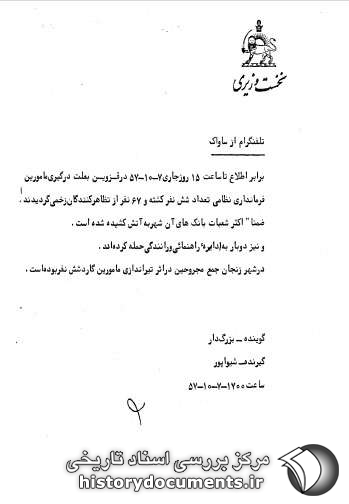 نخست وزیری
تلفنگرام از ساواک
برابر اطلاع تا ساعت ۱۵ روز جاری ۷-۱۰-۵۷ در قزوین بعلت درگیری مامورین
فرمانداری نظامی تعداد شش نفر کشته و ۶۷ نفر از تظاهرکنندگان زخمی گردیدند.
ضمنا" اکثر شعبات بانک های آن شهر به آتش کشیده شده است.
و نیز دوبار به (دایره) راهنمائی و رانندگی حمله کرده اند.
در شهر زنجان جمع مجروحین در اثر تیراندازی مامورین گارد شش نفر بوده است.
گوینده - بزرگ دار
گیرنده - شیواپور
ساعت ۱۷۰۰-۷-۱۰-۵۷
مرکز بررسی اسناد تاریخی
historydocuments.ir